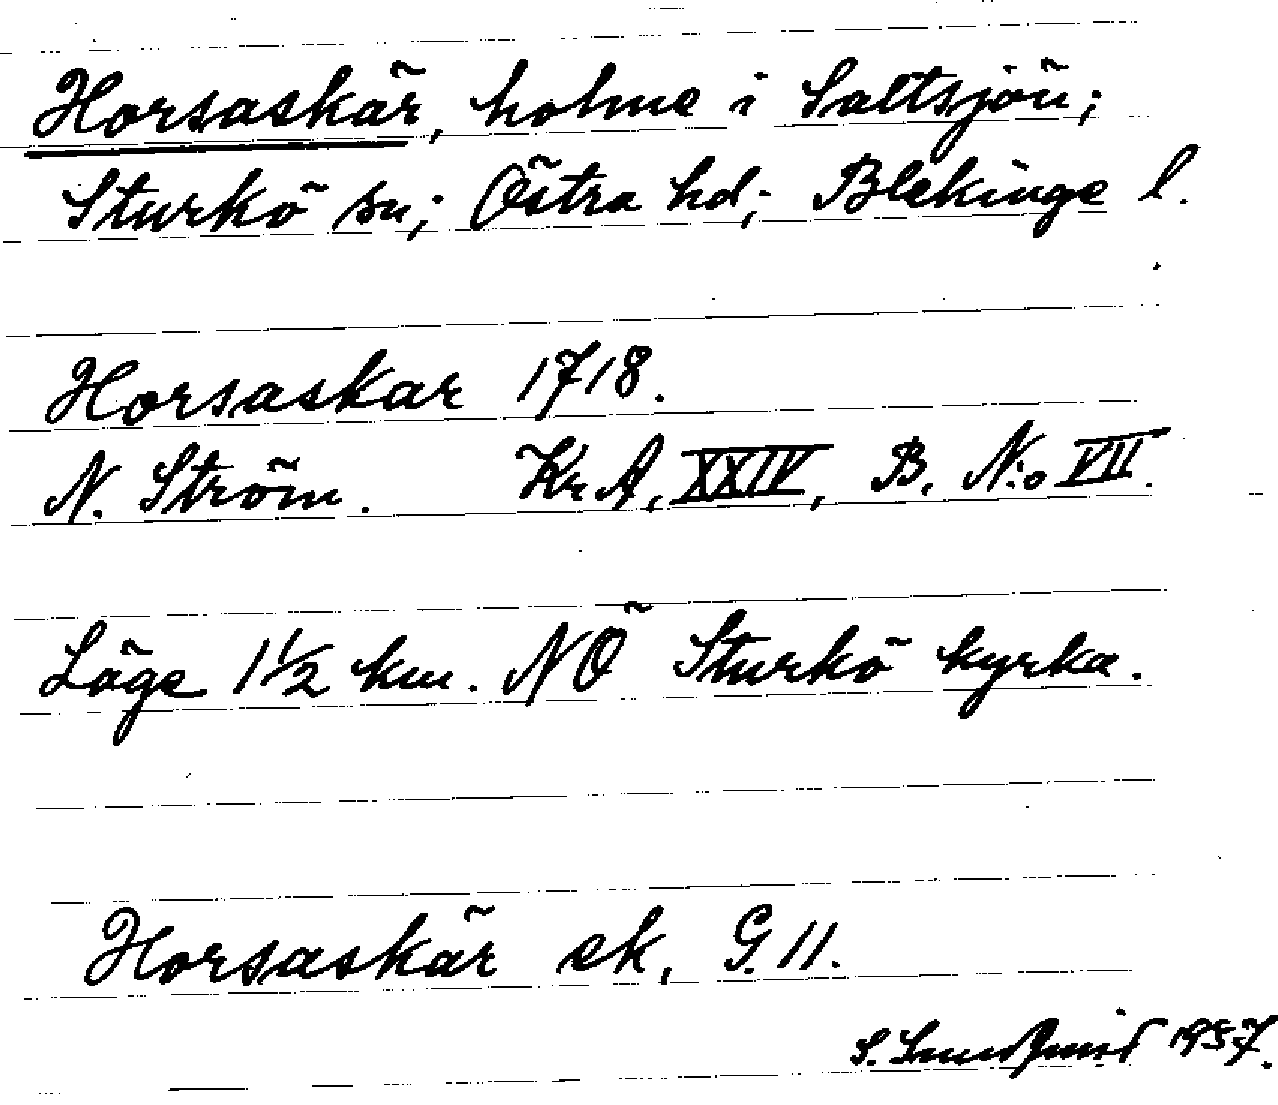 Horsaskär, holme i Saltsjön;
Sturkö sn; Östra hd; Blekinge l.
Horsaskar 1718.
N. Ström. Kr. A, XXIV, B. N:o VII.
Läge 1 1/2 km. NÖ Sturkö kyrka.
Horsaskär ek, G. 11.
S. 1957.